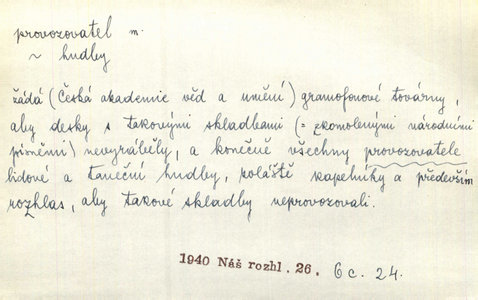 provozovatel m.
~ hudby
žádá (Česká akademie věd a umění) gramofonové továrny,
aby desky s takovými skladbami (= zkomolenými národními
písněmi) nevyráběly, a konečně všechny provozovatele
lidové a taneční hudby, zvláště kapelníky a především
rozhlas, aby takové skladby neprovozovali.
1940 Náš rozhl. 26. 6 c. 24.